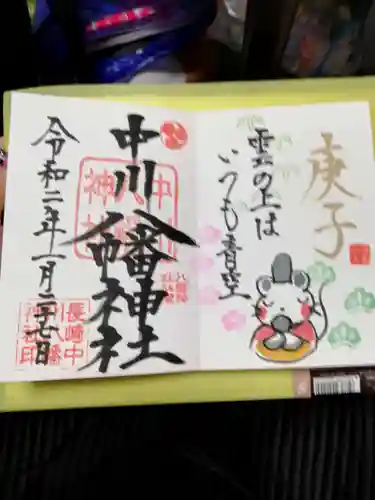 庚子
雲の上は
いつも青空
中川八幡神社
中川
八幡
神社
令和二年一月二十七日
長崎中
川八幡
神社印